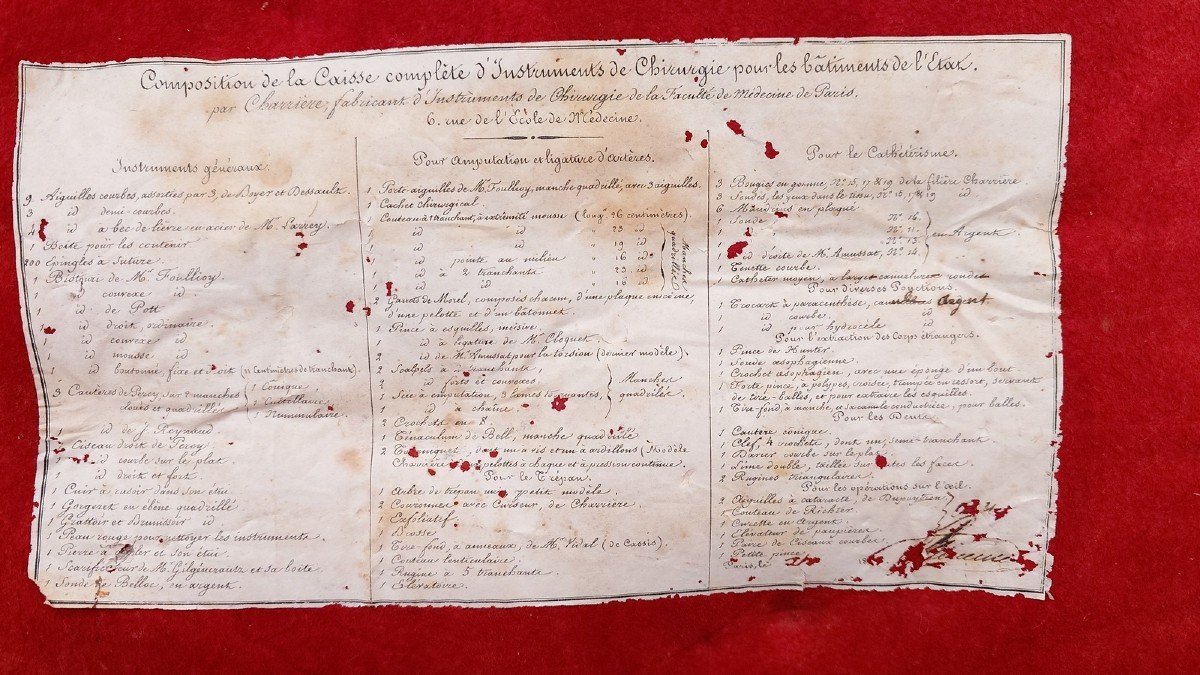 Composition de la Caisse complète d'Instruments de Chirurgie pour les bâtiments de l'Etat.
par Charrière, fabricant d'Instruments de Chirurgie de la Faculté de Médecine de Paris.
6. rue de l'Ecole de Médecine.
Instruments généraux.
9 Aiguilles courbes, assorties par 3, de Boyer et Dessault.
3 id demi-courbes.
4 id a bec de lièvre en acier de Mr. Larrey.
1 Boite pour les contenir
200 Epingles à Suture.
1 Bistouri de Mr. Foullioy.
1 id convexe id.
1 id de Pott
1 id droit, ordinaire.
1 id convexe id
1 id mousse id
1 id boutonné, fixe et droit (11 Centimètres de tranchant).
3 Cautères de Percy, sur 2 manches
à vis et quadrillés
1 Conique,
1 Cultellaire.
1 Nummulaire.
1 id de J. Reynaud.
1 Ciseau droit de Percy.
1 id courbe sur le plat.
1 id droit et fort.
1 Cuir à rasoir dans son étui.
1 Gorgeret en ébène quadrillé
1 Grattoir et brunissoir id.
1 Peau rouge pour nettoyer les instruments.
1 Pierre à et son étui.
1 Scarificateur de Mr. et sa boite.
1 Sonde de Belloc, en argent.
Pour Amputation et ligature d'artères.
1 Porte aiguilles de Mr. Foullioy, manche quadrillé, avec 3 aiguilles.
1 Cachet chirurgical.
1 Couteau à 1 tranchant, à extrémité mousse (long. 26 centimètres).
1 id id " 23 id
1 id id " 19 id
1 id pointe au milieu " 16 id
1 id à 2 tranchants " 23 id
1 id id " 16 id
Manches quadrillés
2 Garrots de Morel, composés chacun, d'une plaque en corne,
d'une pelotte et d'un bâtonnet.
1 Pince à esquilles, incisive.
1 id à ligature de Mr. Cloquet.
2 id de Mr. Amussat pour la torsion (dernier modèle).
2 Scalpels à 2 tranchants,
2 id forts et convexes,
1 Scie à amputation, 3 lames tournantes,
1 id à chaine.
Manches quadrillés
2 Crochets en 8.
1 Ténaculum de Bell, manche quadrillé
2 Tourniquets, dont un à vis et un à ardillons (Modèle
Charrière pelottes à chaque et à pression continue.
Pour le Trépan.
1 Arbre de trépan petit modèle.
2 Couronnes avec Curseur, de Charrière.
1 Exfoliatif.
1 Brosse
1 Tire fond, à anneaux, de Mr. Vidal (de Cassis).
1 Couteau lenticulaire.
1 Rugine à 5 tranchants.
1 Elévatoire.
Pour le Cathétérisme.
3 Bougies en gomme, No. 15, 17 & 19 de la filière Charrière.
3 Sondes, les yeux dans le tissu, No. 15, 17 & 19 id.
6 Mandrins en plaqué.
1 Sonde No. 16.
1 " No. 11.
1 " No. 13.
1 id droite de Mr. Amussat, No. 14.
en Argent.
1 Tenette courbe.
1 Cathéter moyen, à large cannelure ronde
Pour diverses Ponctions.
1 Trocart à paracenthèse, canule argent
1 id courbe. id
1 id pour hydrocèle id
Pour l'extraction des Corps étrangers.
1 Pince de Hunter.
1 Sonde œsophagienne.
1 Crochet œsophagien, avec une éponge d'un bout.
1 Forte pince, à polypes, croisée, trempée en ressort, servant
de tire-balles, et pour extraire les esquilles.
1 Tire fond, à manche, et sa canule conductrice, pour balles.
Pour les Dents.
1 Cautère conique.
1 Clef, 4 crochets, dont un, semi-tranchant
1 Davier courbe sur le plat.
1 Lime double, taillée sur toutes les faces.
2 Rugines triangulaires.
Pour les opérations sur l'œil.
2 Aiguilles à cataracte, de Dupuytren
1 Couteau de Richter
1 Curette en Argent.
1 Elévateur de paupières.
1 Paire de Ciseaux courbes.
1 Petite pince.
Paris, le 18